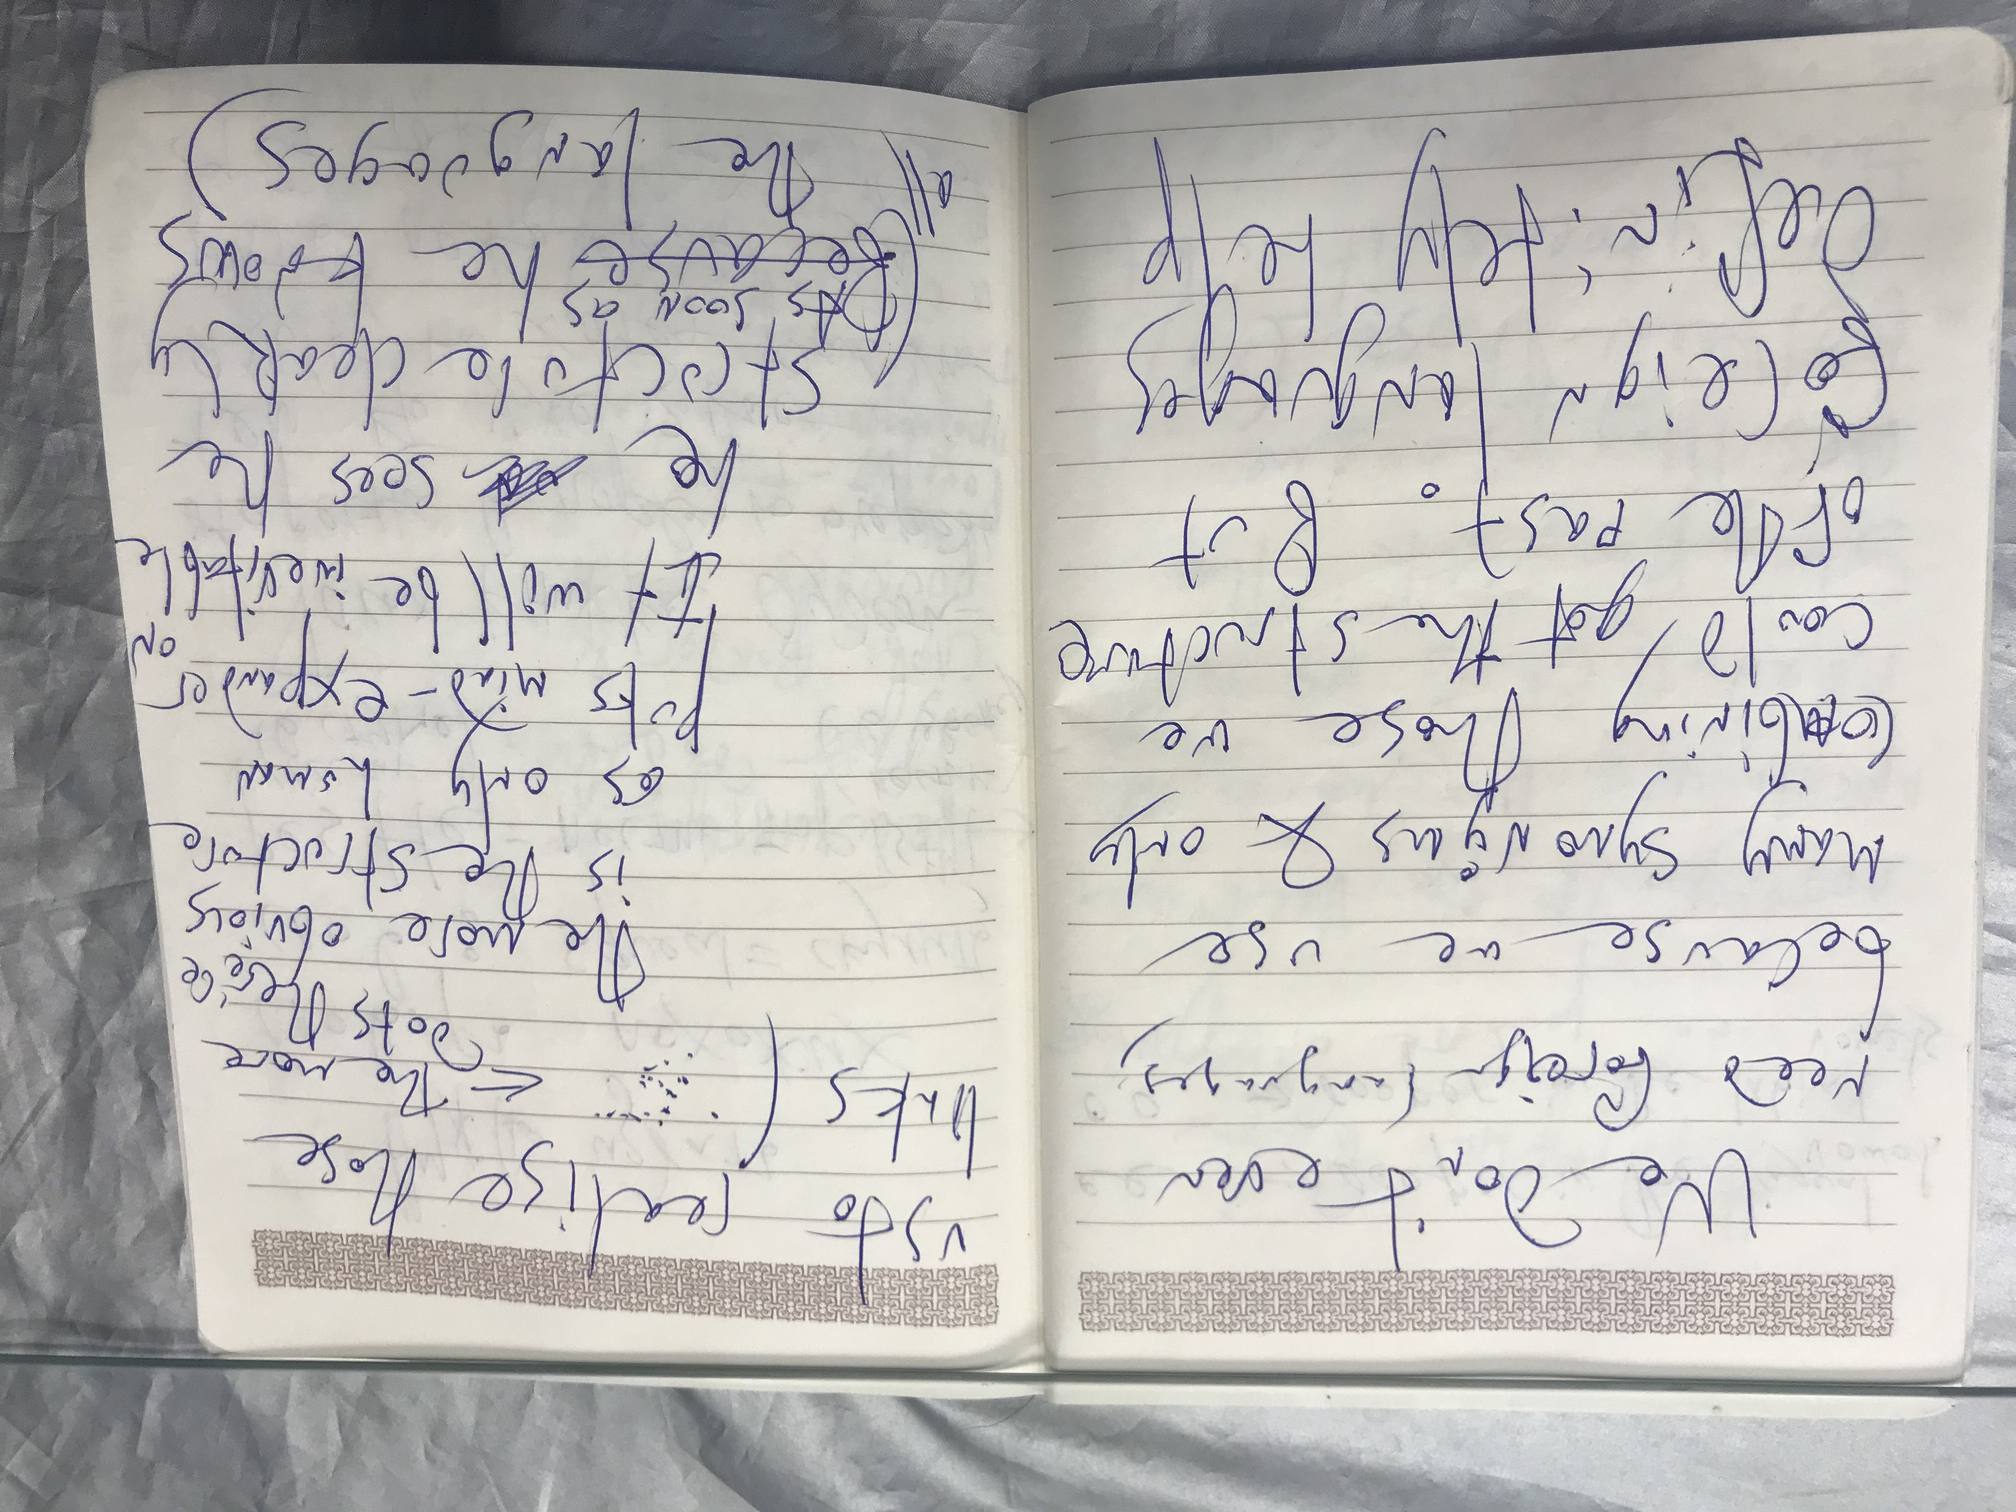 We don't even
need foreign languages,
because we use
many synonyms & only
combining those we
could get the structure
of the past. But
foreign languages
definitely help
us to realise those
links ( ← The more
dots there're
the more obvious
is the structure
as only human
puts mind-expander on
It will be inevitable
he sees the
structure clearly
(As soon as
Because he knows
all the languages)